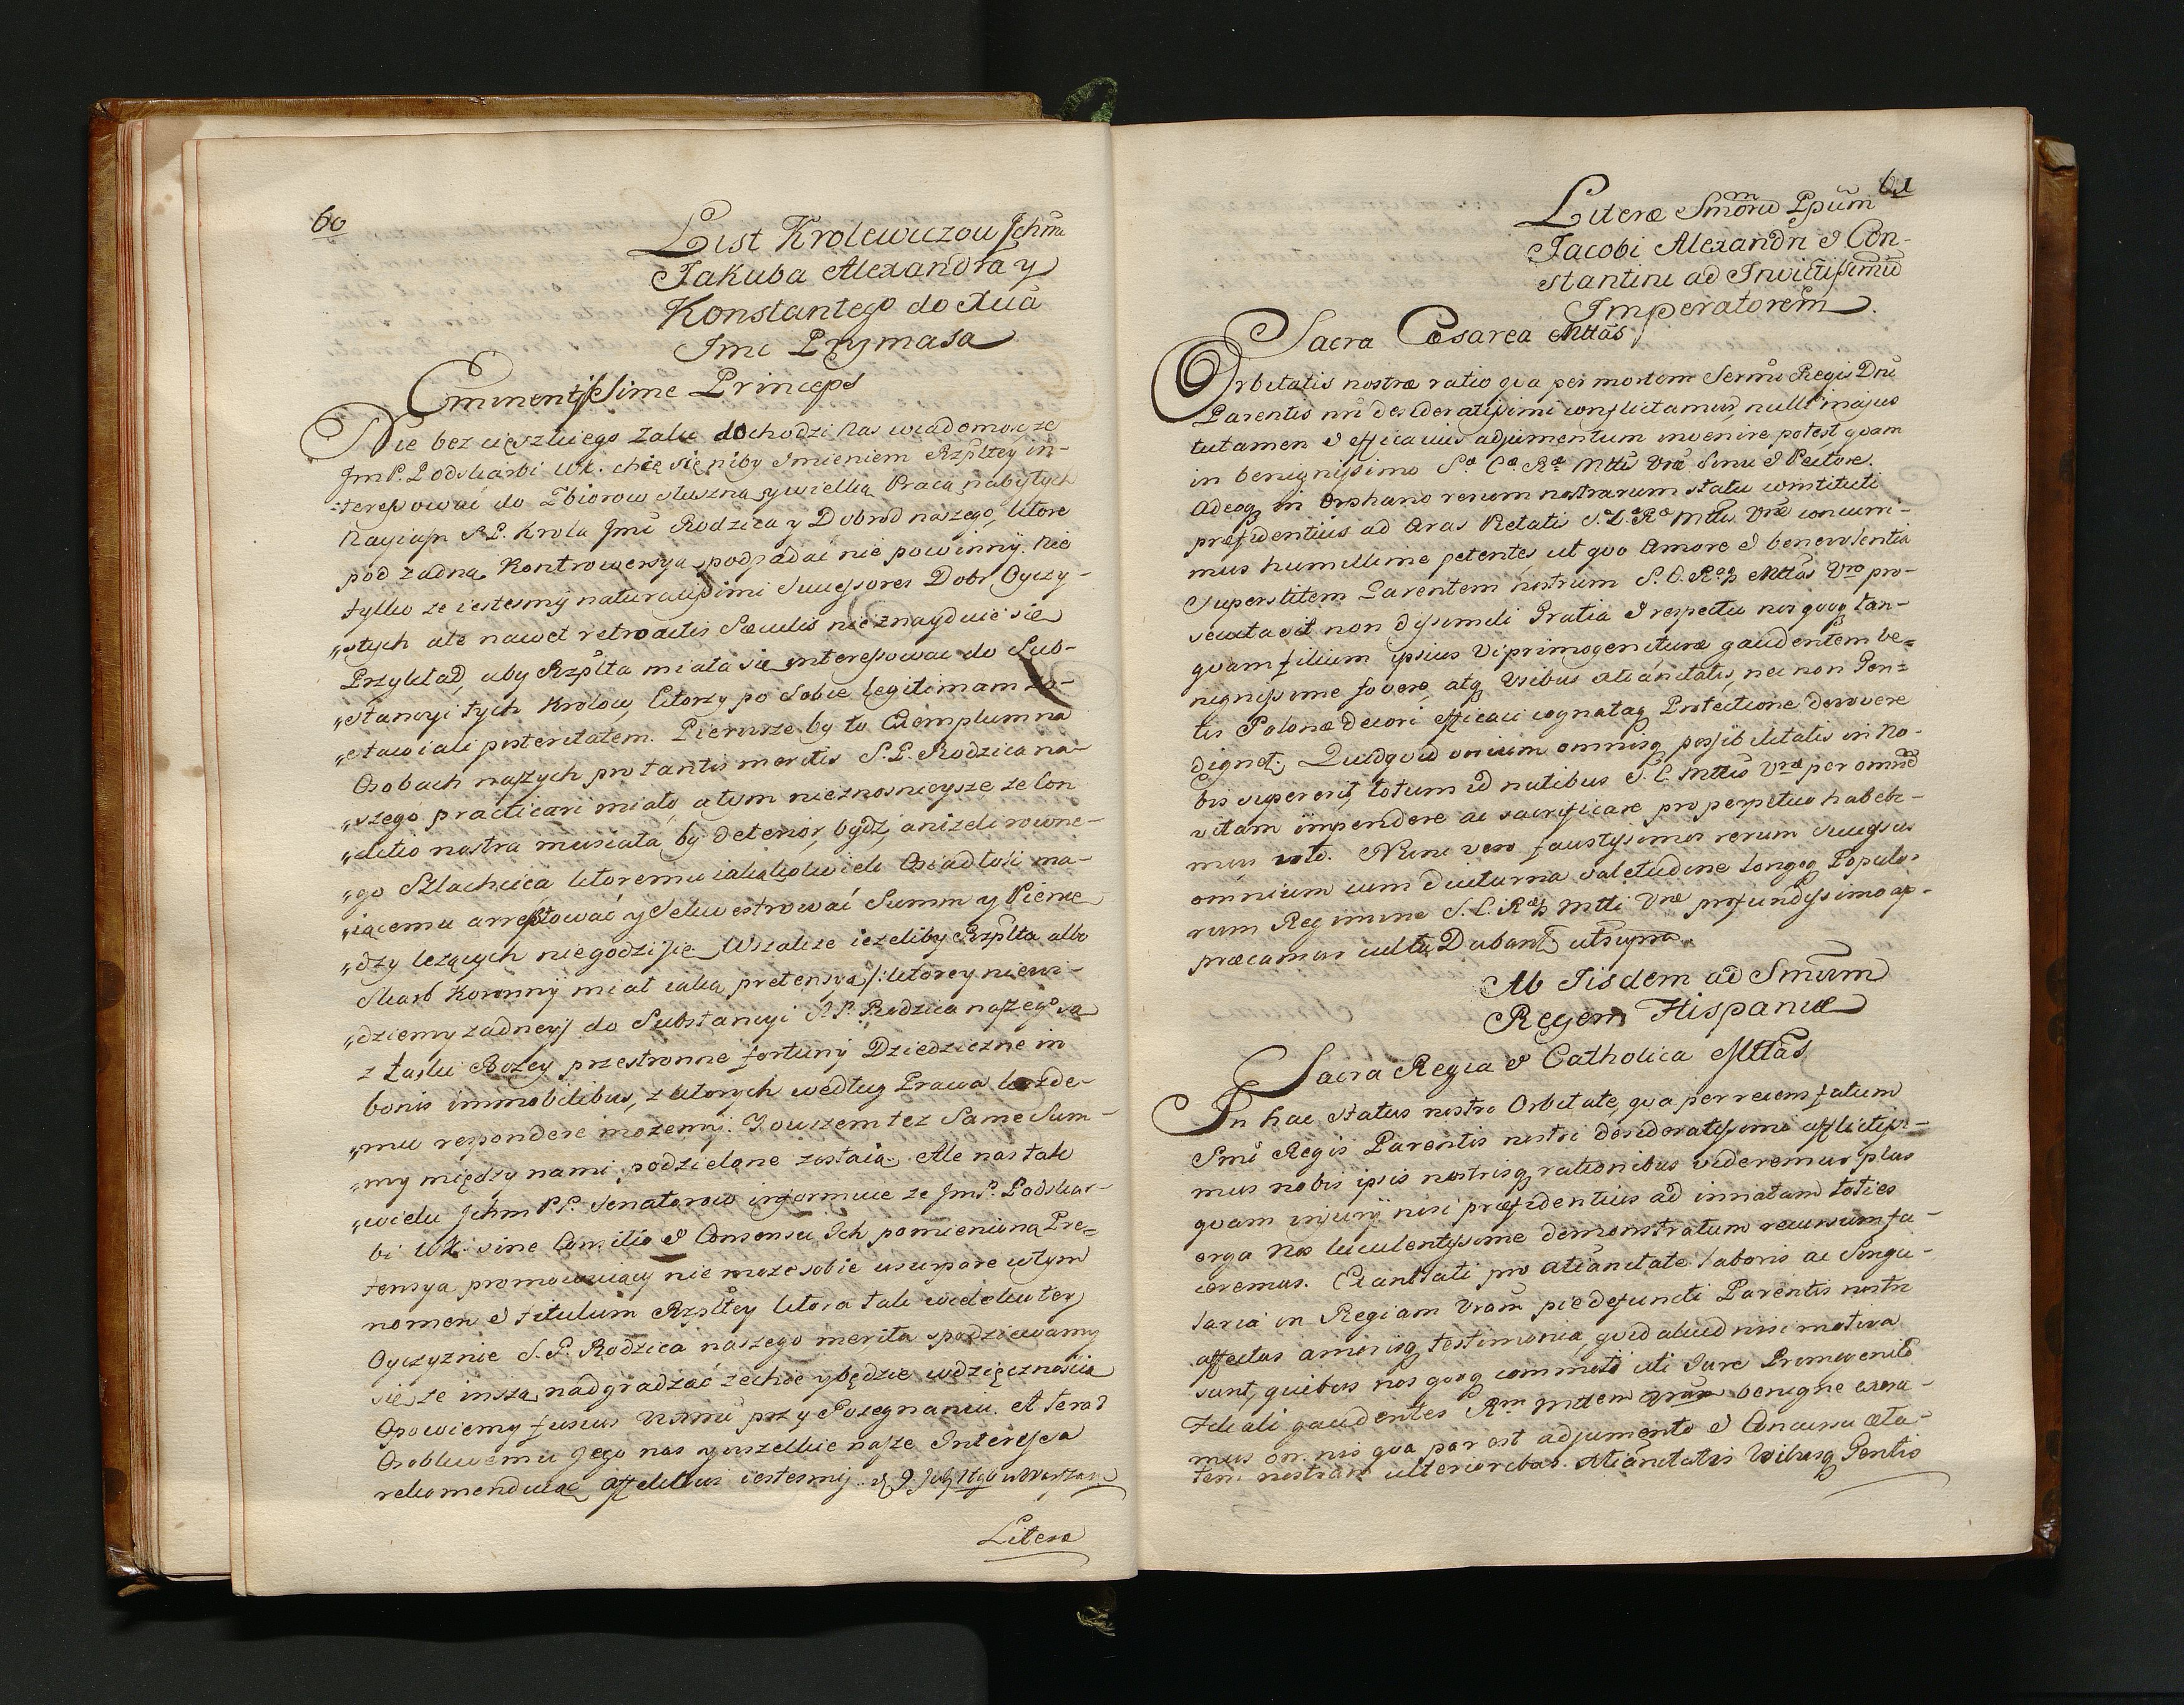 60
List Krolewiczow Jchm̃
Jakuba Alexandra y
Konstantego do Xcia
Jmc Prymasa
Eminentissime Princeps
Nie bez cięszkiego Zalu dochodzi nas wiadomosc ze
Jm P. Podskarbi WK. chce się niby Jmieniem Rzpltey in-
-teressować do Zbiorow słuszną y wielką Pracą nabytych
Nayiasn S.P. Krola Jmci Rodzica y Dobrod naszego, ktore
pod zadną Kontrowersyą podpadać nie powinny. Nie
tylko ze iestesmy naturalissimi Successores Dobr Oyczy-
„stych ale nawet retroactis Sæculis nie znayduie się
Przykład, aby Rzplta miała się interessować do Sub-
„stancyi tych Krolow, ktorzy po sobie legitimam zo-
„stawiali posteritatem. Pierwsze by to Exemplum na
Osobach naszych pro tantis meritis S.P. Rodzica na-
„szego practicari miało, a tym nieznosnieysze ze Con
„ditio nostra musiała by deterior bydz, anizeli rowne-
„go Szlachcica ktoremu iakązkolwiek Osiadłość ma-
„iącemu arresztować y Sekwestrować Summ y Pienię
„dzy lezących niegodzi się. Wszakze iezeliby Rzplta albo
Skarb Koronny miał iaką pretensyą /: ktorey niewi-
„dziemy zadney:/ do Substancyi S.P. Rodzica naszego są
z Łaski Bozey przestronne fortuny Dziedziczne in
bonis immobilibus, z ktorych według Prawa kozde-
„mu respondere mozemy. I owszem tez Same Sum-
„my między nami podzielone zostaią. Ale nas tak
„wielu Jchm PP. Senatorow informuie ze Jm P. Podskar-
bi WK. sine Consilio & Consensu Jch pomienioną Pre=
tensyą promowuiący nie moze sobie usurpare w tym
nomen & titulum Rzpltey ktora tak wielokutey
Oyczyznie S.P. Rodzica naszego merita spodziewamy
się ze inszą nadgradzać zechce y będzie wdzięcznością
Opowiemy fusius przy Pozegnaniu. A teraz
Osobliwemu Jego nas y wszelkie nasze Interessa
rekomenduiąc affektowi iestesmy. d 9 July 1696 w Warszaw
Literæ
61
Literæ Smorũ Ppũm
Jacobi Alexandri & Con-
stantini ad Invictissimũ
Imperatorem.
Sacra Cæsarea Mttas
Orbitatis nostræ ratio qua per mortem Sermi Regis Dni
Parentis nri desideratissimi conflictamur, nullũ majus
tutamen & efficacius adjumentum invenire potest quam
in benignissimo Sæ Cæ Ræ Mttis Vræ Sinu & Pectore.
Adeoq in Orphano rerum nostrarum statu constituti
præfidentius ad Aras Pietatis S. C. Ræ Mttis Vræ concurri-
mus humillime petentes, ut quo Amore & benevolentia
Superstitem Parentem nostrum S. C. Mttas Vra pro-
secuta est non dissimili Gratia & respectu nos quoq tan-
quam filium ipsius Vi primogenituræ gaudentem be=
nignissime fovere, atq Usibus Xtianitatis, nec non Gen=
tis Polonæ decori efficaci cognataq Protectione devovere
dignet. Quidquid virium omnisq possibilitatis in No-
bis supererit, totum id nutibus S. C. Mttis Vræ per omnẽ
vitam impendere ac sacrificare pro perpetuo habebi-
mus voto. Nunc vero faustissimos rerum successus
omnium cum diuturna valetudine longoq Populo-
rum Regimine S. C. Mtti Vræ profundissimo ap-
præcamur cultu Dabant ut supra.
Ab Iisdem ad Smum
Regem Hispaniæ
Sacra Regia & Catholica Mttas
In hac status nostri Orbitate, qua per recens fatum
Smi Regis Parentis nostri desideratissimi afflictissi-
mus nobis ipsis nostrisq rationibus videremur plus
quam injurij nisi præfidentius ad innatam toties
erga nos luculentissime demonstratum recursum fa-
ceremus. Exantlati pro Xtianitate labores ac Singu-
laria in Regiam Vram pie defuncti Parentis nostri
affectus amorisq testimonia, quid aliud nisi motiva
sunt, quibus nos quoq commoti uti Jure Primogenito
filiali gaudentes Rm Mttem Vram benigne exora-
mus omnis qua par est adjumento & Concursu æta-
tem nostram ulterioribus Xtianitatis Usibusq Gentis